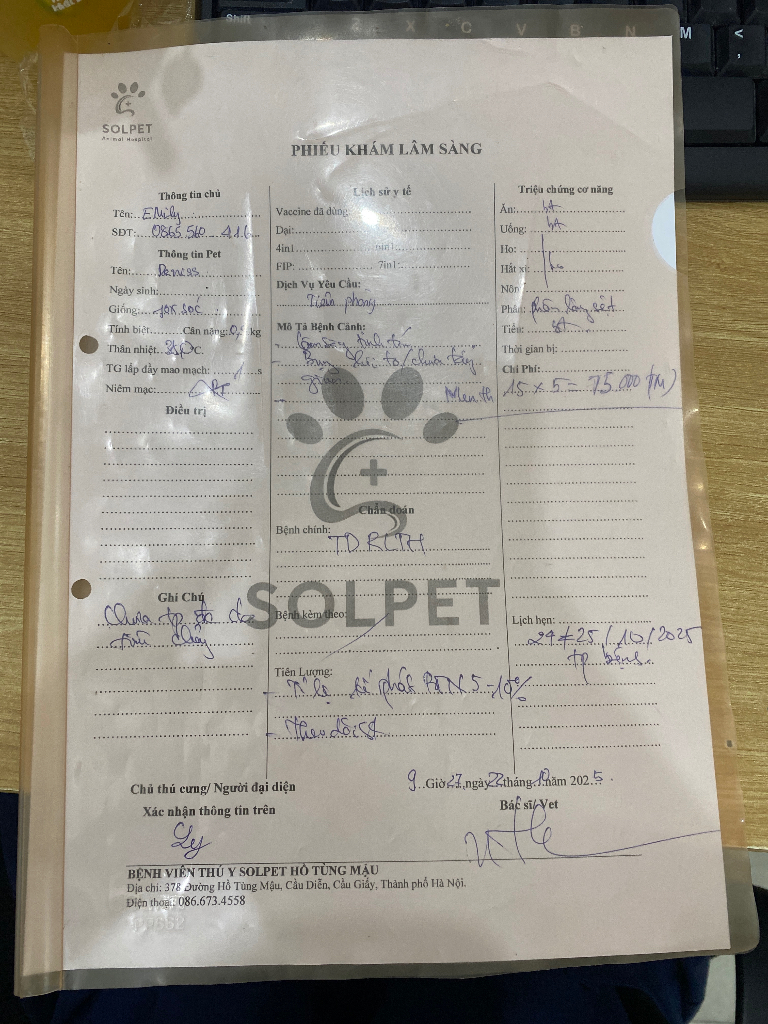 Shift
Z X C V B N M <
,
SOLPET
Animal Hospital
PHIẾU KHÁM LÂM SÀNG
Thông tin chủ
Tên: EMily
SĐT: 0865 560 416
Thông tin Pet
Tên:
Ngày sinh:
Giống: sóc
Tính biệt Cân nặng: kg
Thân nhiệt °C.
TG lấp đầy mao mạch: 1 s
Niêm mạc:
Điều trị
Ghi Chú
Chưa
Lịch sử y tế
Vaccine đã dùng:
Dại:
4in1 6in1:
FIP: 7in1:
Dịch Vụ Yêu Cầu:
Tiêm phòng
Mô Tả Bệnh Cảnh:
- Lâm sàng tỉnh táo
- Bụng hơi to / chưa tẩy
giun
- Men th
Chẩn đoán
Bệnh chính:
TD RLTH
SOLPET
Bệnh kèm theo:
Tiên Lượng:
- Tỉ lệ phát 5-10%
- Theo dõi
Triệu chứng cơ năng
Ăn: bt
Uống: bt
Ho:
Hắt xì: ko
Nôn
Phân: phân lỏng sệt
Tiểu: bt
Thời gian bị:
Chi Phí:
15 x 5 = 75.000 (TM)
Lịch hẹn:
24 25/10/2025
Chủ thú cưng/ Người đại diện
Xác nhận thông tin trên
Ly
9 Giờ 27, ngày 22 tháng 10 năm 2025
Bác sĩ/Vet
BỆNH VIỆN THÚ Y SOLPET HỒ TÙNG MẬU
Địa chỉ: 378 Đường Hồ Tùng Mậu, Cầu Diễn, Cầu Giấy, Thành phố Hà Nội.
Điện thoại: 086.673.4558